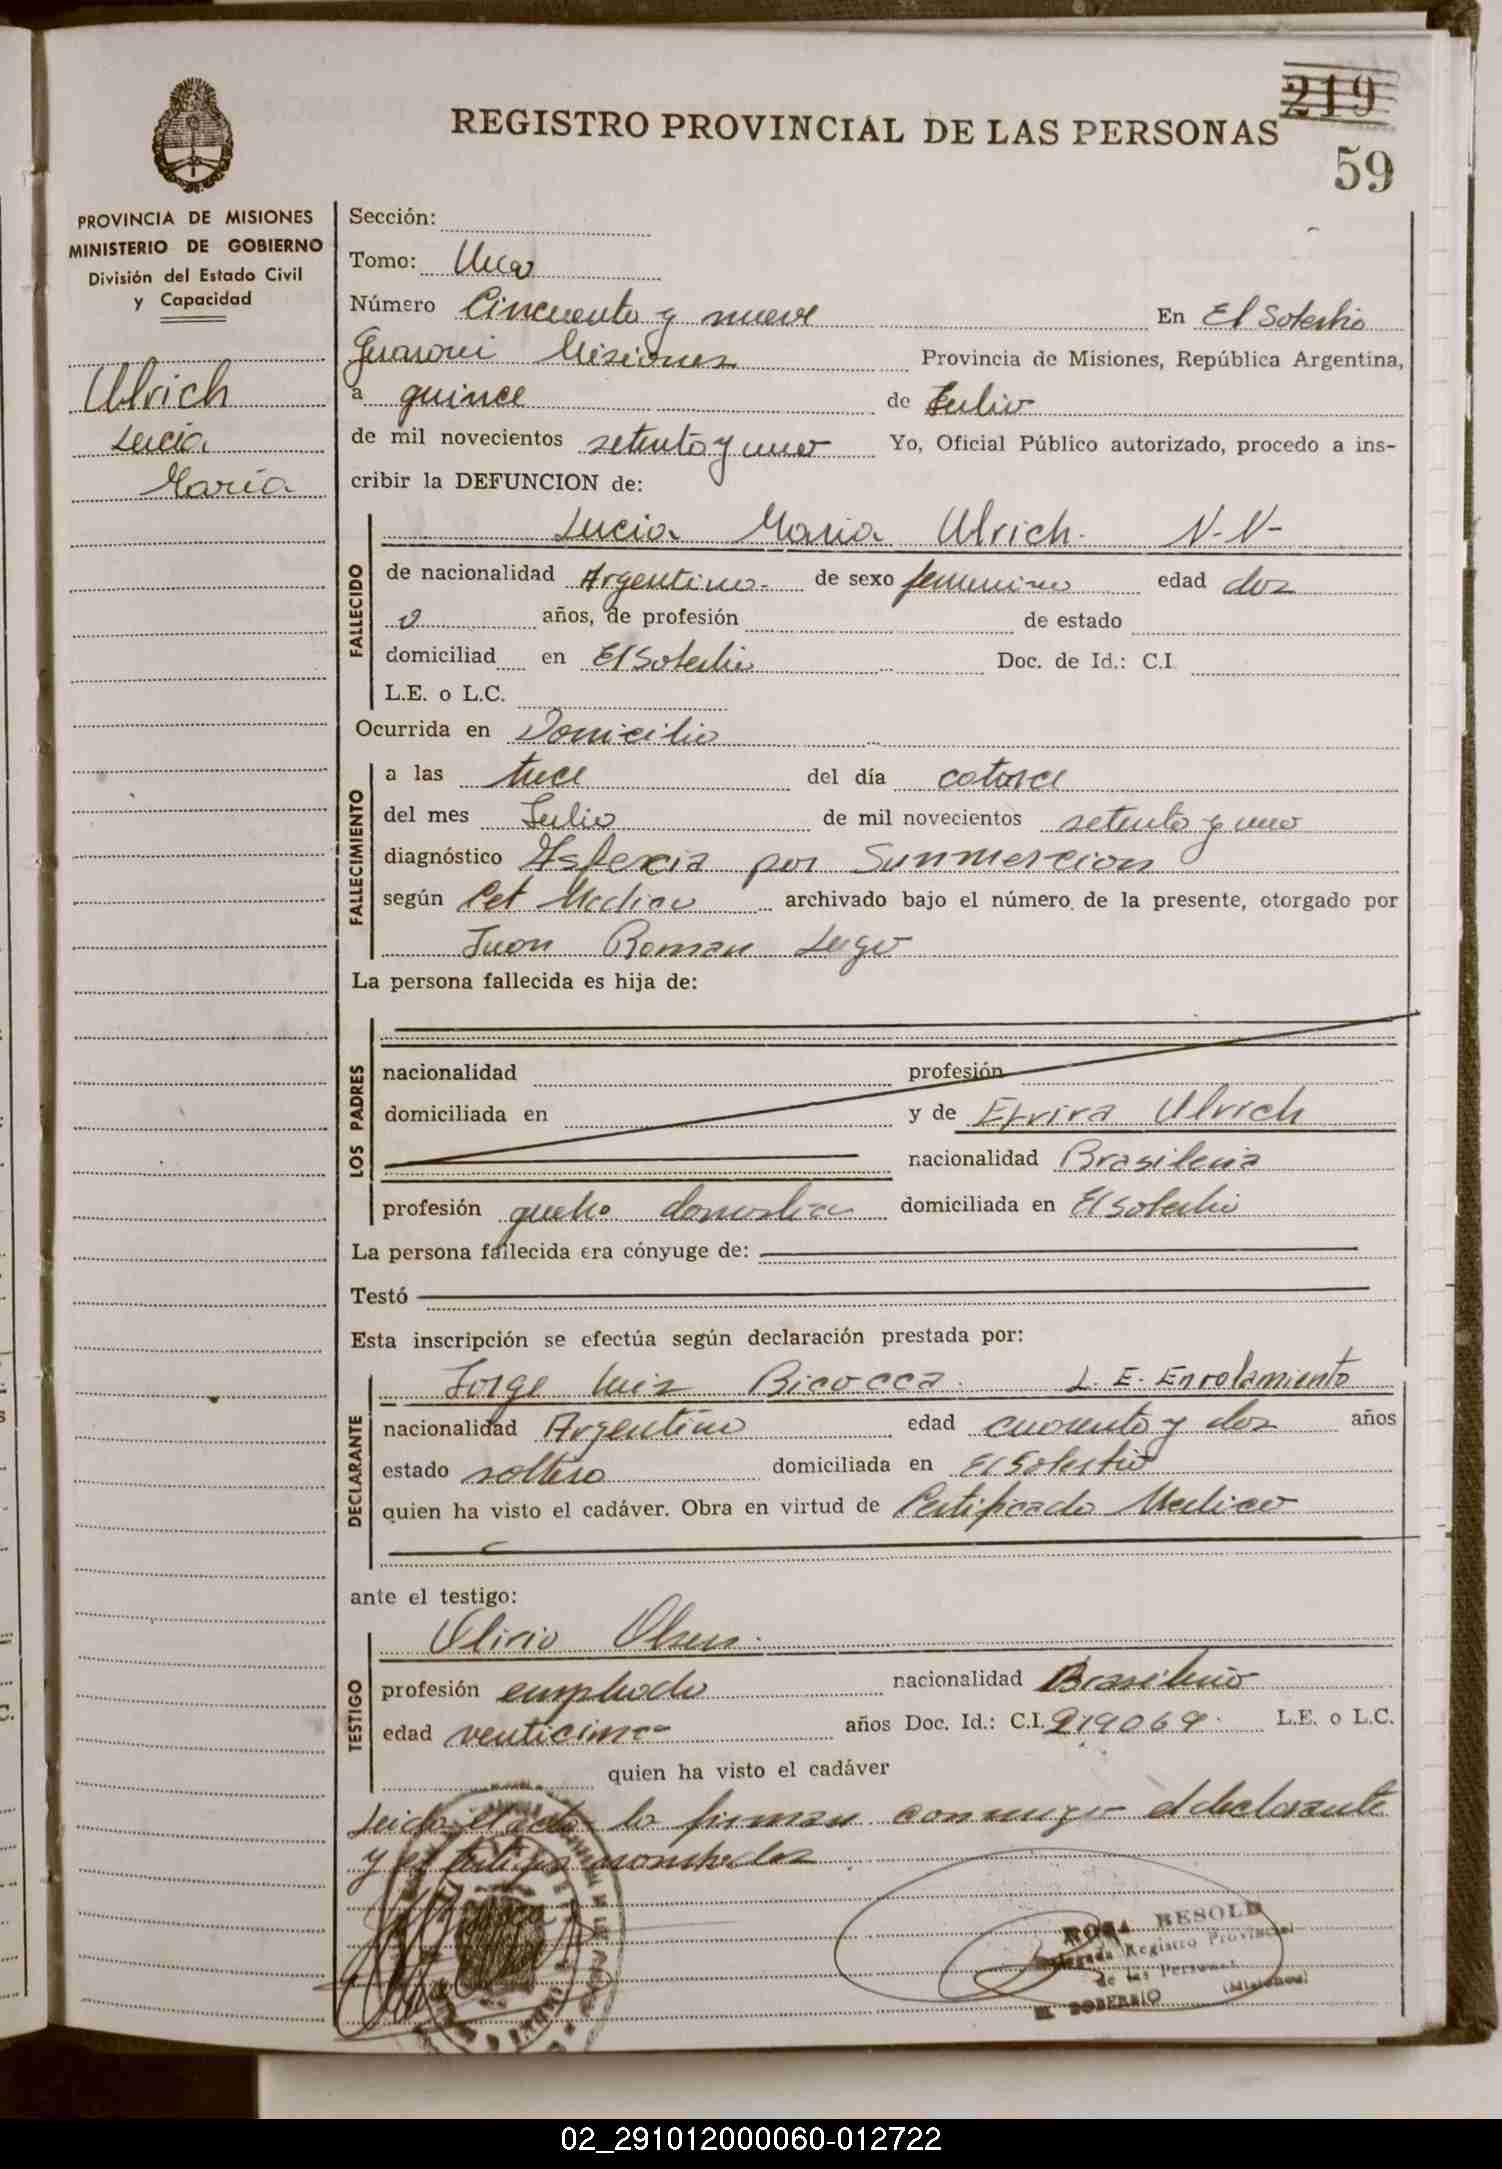 219
REGISTRO PROVINCIAL DE LAS PERSONAS
59
PROVINCIA DE MISIONES
MINISTERIO DE GOBIERNO
División del Estado Civil
y Capacidad
Ulrich
Lucia
Maria
Sección:
Tomo: Uno
Número Cincuenta y nueve En El Soberbio
Guarani Misiones Provincia de Misiones, República Argentina,
a quince de Julio
de mil novecientos setenta y uno Yo, Oficial Público autorizado, procedo a ins-
cribir la DEFUNCION de:
Lucia Maria Ulrich. N-N-
FALLECIDO
de nacionalidad Argentina de sexo femenino edad dos
años, de profesión de estado
domiciliad en El Soberbio Doc. de Id.: C.I.
L.E. o L.C.
Ocurrida en Domicilio
FALLECIMIENTO
a las trece del día catorce
del mes Julio de mil novecientos setenta y uno
diagnóstico Asfexia por Sunmercion
según Cet Medico archivado bajo el número de la presente, otorgado por
Juan Roman Lugo
La persona fallecida es hija de:
LOS PADRES
nacionalidad profesión
domiciliada en y de Elvira Ulrich
nacionalidad Brasileña
profesión domiciliada en El Soberbio
La persona fallecida era cónyuge de:
Testó
Esta inscripción se efectúa según declaración prestada por:
DECLARANTE
Jorge Luis Bicocca. L. E. Enrolamiento
nacionalidad Argentino edad cuarenta y dos años
estado soltero domiciliada en El Soberbio
quien ha visto el cadáver. Obra en virtud de Certificado Medico
ante el testigo:
TESTIGO
Olirio Olsen.
profesión empleado nacionalidad Brasileño
edad venticinco años Doc. Id.: C.I. 219069. L.E. o L.C.
quien ha visto el cadáver
Leida el acta la firman conmigo el declarante
y el testigo
ROSA BESOLD
Delegada Registro Provincial
de las Personas
EL SOBERBIO (Misiones)
02_291012000060-012722